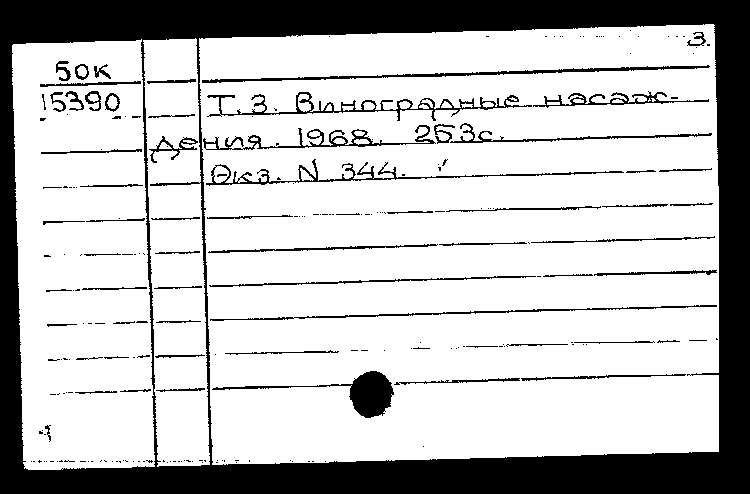 3.
50к
15390 Т.3. Виноградные насаж-
дения. 1968. 253с.
Экз. N 344.